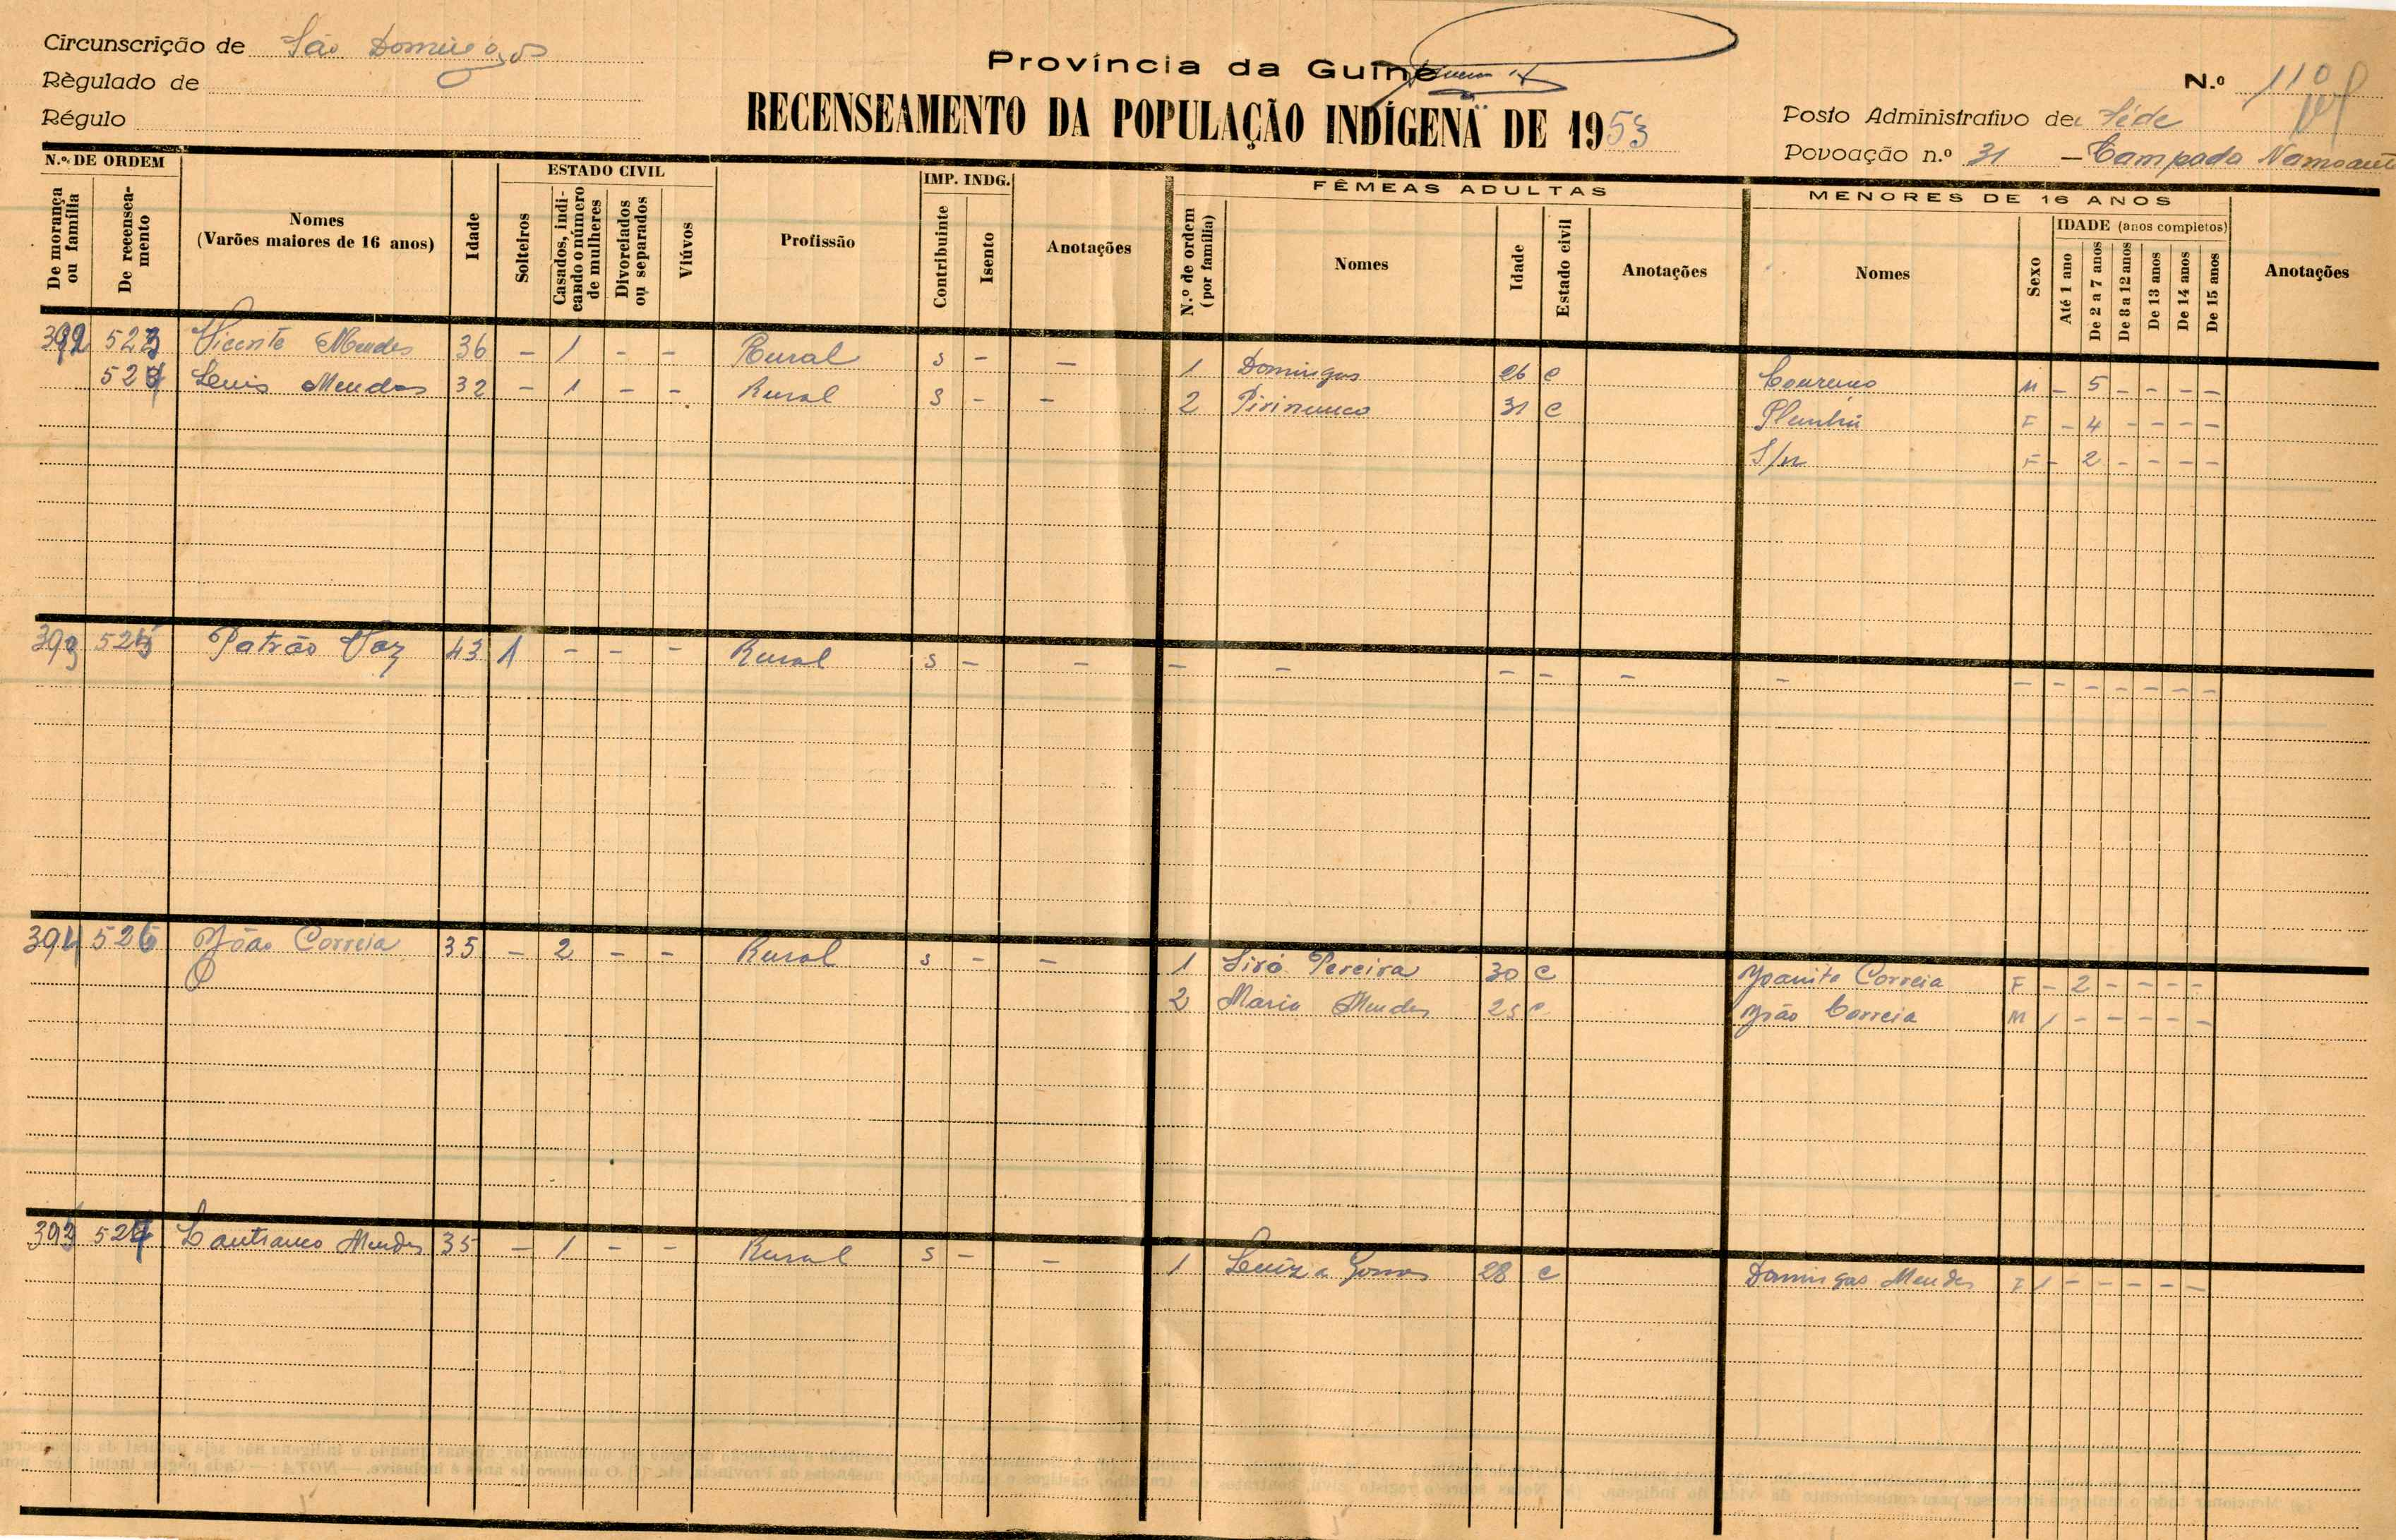 Circunscrição de São Domingos
Règulado de
Régulo
Província da Guiné
RECENSEAMENTO DA POPULAÇÃO INDÍGENA DE 1953
N.º 110
Posto Administrativo de Séde
Povoação n.º 31 — Campada
N.os DE ORDEM
De morança ou família
De recenseamento
Nomes
(Varões maiores de 16 anos)
Idade
ESTADO CIVIL
Solteiros
Casados, indicando o número de mulheres
Divorciados ou separados
Viúvos
Profissão
IMP. INDG.
Contribuinte
Isento
Anotações
FÊMEAS ADULTAS
N.º de ordem (por família)
Nomes
Idade
Estado civil
Anotações
MENORES DE 16 ANOS
Nomes
Sexo
IDADE (anos completos)
Até 1 ano
De 2 a 7 anos
De 8 a 12 anos
De 13 anos
De 14 anos
De 15 anos
Anotações
392 523 Vicente Mendes 36 - 1 - - Rural s - - 1 Domingas 26 c M - 5 - - - -
524 Luis Mendes 32 - 1 - - Rural s - - 2 31 c F - 4 - - - -
S/n F - 2 - - - -
393 525 Patrão Vaz 43 1 - - - Rural s - - - - - - - - - - - - - - -
394 526 João Correia 35 - 2 - - Rural s - - 1 Siró Pereira 30 c Joanita Correia F - 2 - - - -
2 Maria Mendes 25 c João Correia M 1 - - - - -
395 527 Mendes 35 - 1 - - Rural s - - 1 Luiza Gomes 28 c Domingas Mendes F 1 - - - - -